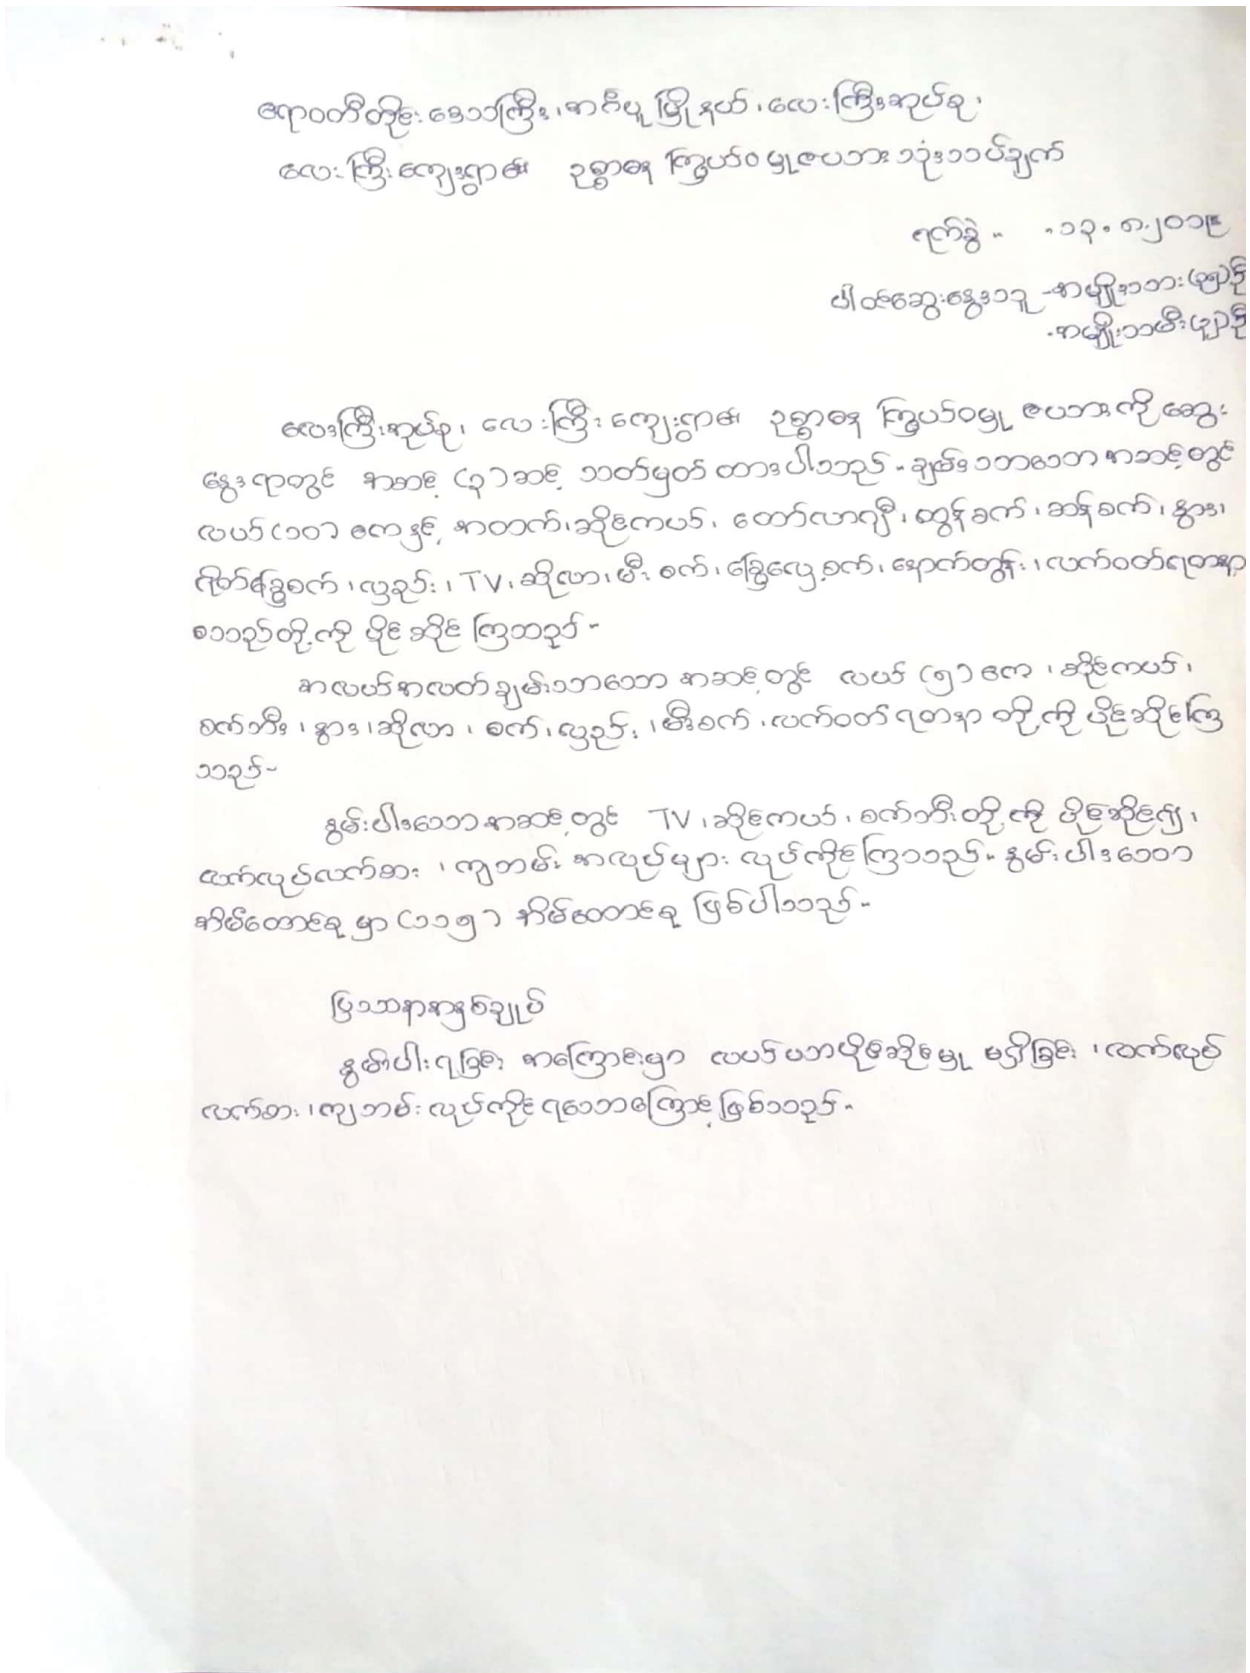 ဧရာဝတီတိုင်းဒေသကြီး၊ အင်္ဂပူမြို့နယ်၊ လေးကြီးအုပ်စု၊
လေးကြီးကျေးရွာ၏ ဥစ္စာဓန ကြွယ်ဝမှုဇယား သုံးသပ်ချက်
ရက်စွဲ - ၁၃.၈.၂၀၁၉
ပါဝင်ဆွေးနွေးသူ - အမျိုးသား
- အမျိုးသမီး
လေးကြီးအုပ်စု၊ လေးကြီးကျေးရွာ၏ ဥစ္စာဓန ကြွယ်ဝမှု ဇယားကို ဆွေး
နွေးရာတွင် အဆင့် (၃) ဆင့် သတ်မှတ် ထားပါသည်။ ချမ်းသာသော အဆင့်တွင်
လယ် (၁၀) ဧကနှင့် အထက်၊ ဆိုင်ကယ်၊ ထော်လာဂျီ၊ ထွန်စက်၊ ဆန်စက်၊ နွား၊
ရိတ်ခြွေစက်၊ လှည်း၊ TV၊ ဆိုလာ၊ မီးစက်၊ ခြွေလှေ့စက်၊ နောက်တွန်း၊ လက်ဝတ်ရတနာ
စသည်တို့ကို ပိုင်ဆိုင်ကြသည်။
အလယ်အလတ်ချမ်းသာသော အဆင့်တွင် လယ် (၅) ဧက၊ ဆိုင်ကယ်၊
စက်ဘီး၊ နွား၊ ဆိုလာ၊ စက်၊ လှည်း၊ မီးစက်၊ လက်ဝတ်ရတနာ တို့ကို ပိုင်ဆိုင်ကြ
သည်။
နွမ်းပါးသော အဆင့်တွင် TV၊ ဆိုင်ကယ်၊ စက်ဘီးတို့ကို ပိုင်ဆိုင်၍၊
လက်လုပ်လက်စား၊ ကျဘမ်း အလုပ်များ လုပ်ကိုင်ကြသည်။ နွမ်းပါးသော
အိမ်ထောင်စုမှာ (၁၁၅) အိမ်ထောင်စု ဖြစ်ပါသည်။
ပြဿနာအနှစ်ချုပ်
နွမ်းပါးရခြင်း အကြောင်းမှာ လယ်ယာပိုင်ဆိုင်မှု မရှိခြင်း၊ လက်လုပ်
လက်စား၊ ကျဘမ်း လုပ်ကိုင်ရသောကြောင့် ဖြစ်သည်။